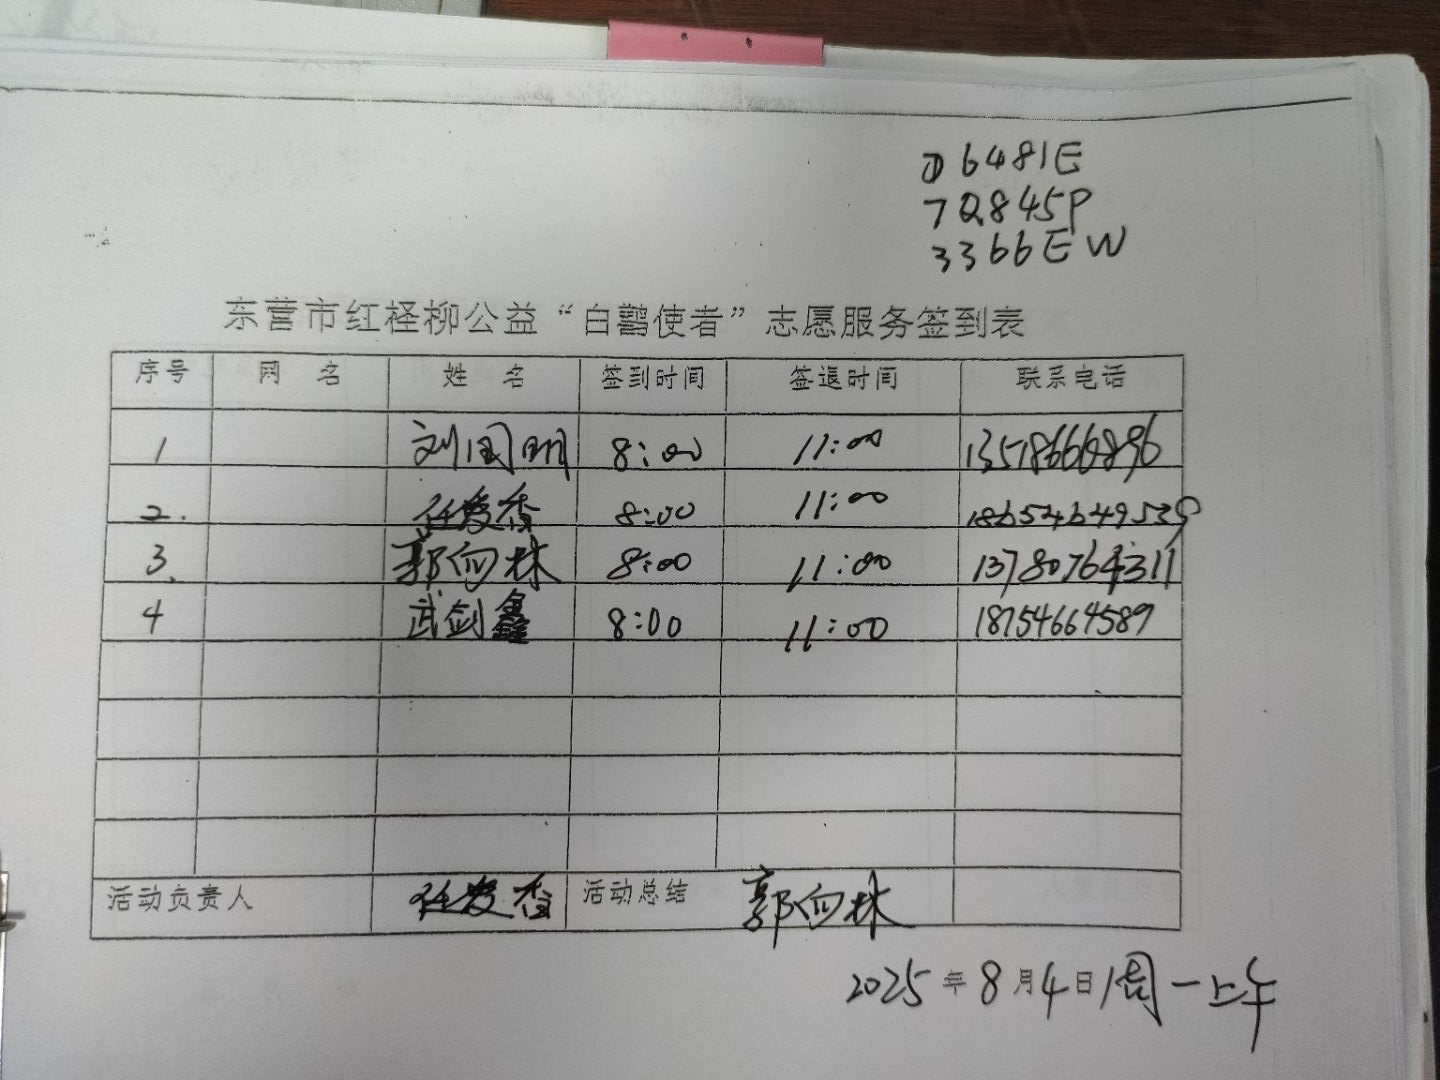 D6481E
7Q845P
3366EW
东营市红柽柳公益“白鹳使者”志愿服务签到表
序号 网 名 姓 名 签到时间 签退时间 联系电话
1 刘国明 8:00 11:00 13518666896
2. 任爱香 8:00 11:00 18654649539
3. 郭向林 8:00 11:00 13780764311
4 武剑鑫 8:00 11:00 18754664589
活动负责人 任爱香 活动总结 郭向林
2025年8月4日 周一上午